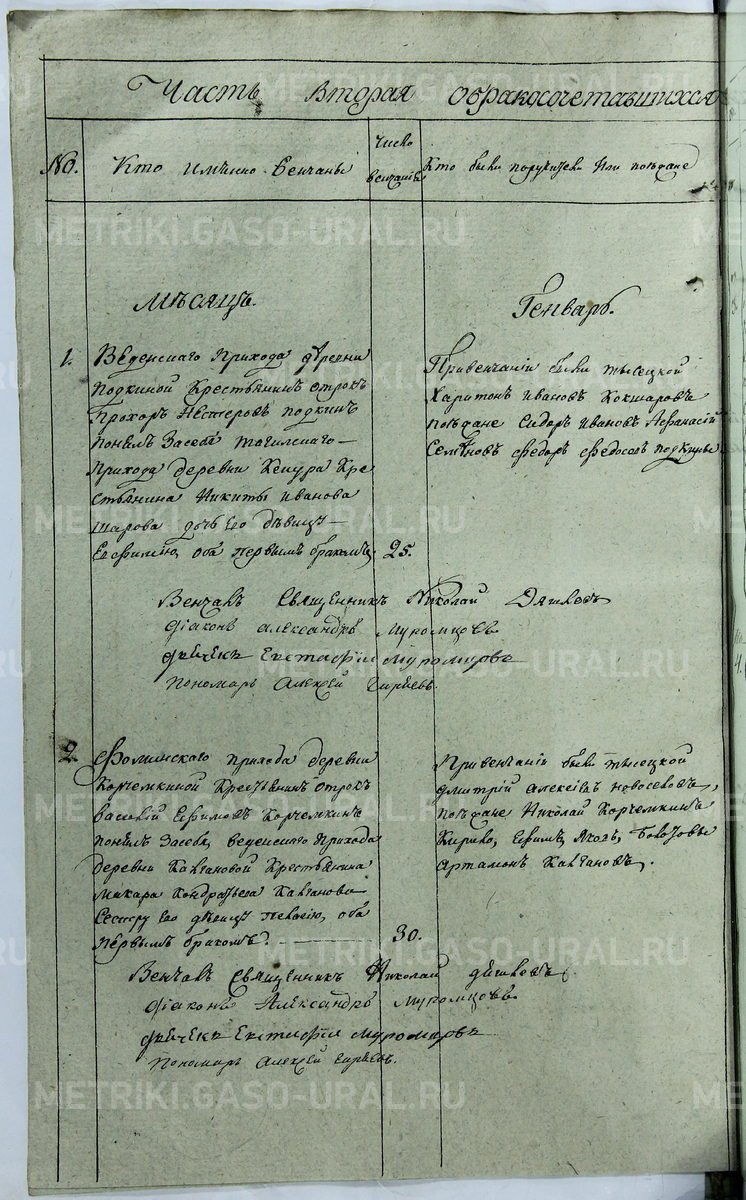 Часть Вторая обракосочетавшихся
№.
Кто имянно венчаны
число венчания
Кто были поручители или поезжане
Мѣсяцъ.
Генварь.
1.
Веденсково прихода деревни
подкиной крестьянинъ отрокъ
Прохоръ Нестеровъ подкинъ
понялъ засебя тагилскаго
прихода деревни Кре
стьянина Никиты иванова
шарова дочь ево дѣвицу
Евфимию, оба первымъ бракомъ,
25.
Привенчаніи были тысецкой
Харитонъ ивановъ Кокшаровъ
поѣзжане Сидоръ ивановъ Афанасий
Семеновъ федоръ федосеевъ подкины
Венчалъ Священникъ Николай
Діаконъ александръ Муромцовъ
Дьячекъ Евстафии Муромцовъ
Пономарь Алексѣй Гиревъ.
2.
Фоминскаго прихода деревни
Корчемкиной Крестьянинъ отрокъ
васелий Ефимовъ Корчемкинъ
понялъ засебя, веденскаго прихода
деревни Колчановой Крестьянина
макара Кондратьева Колчанова
сестру ево дѣвицу пелагию, оба
первымъ бракомъ.
30.
Привенчаніи были тысецкой
дмитрий алексѣевъ новоселовъ,
поѣзжане Николай Корчемкинъ
Кирило, Ефимъ, Яковъ,
артамонъ Колчановъ.
Венчалъ Священникъ Николай
Діаконъ Александръ Муромцовъ
Дьячекъ Евстафии Муромцовъ
Пономарь алексѣй Гиревъ.
METRIKI.GASO-URAL.RU